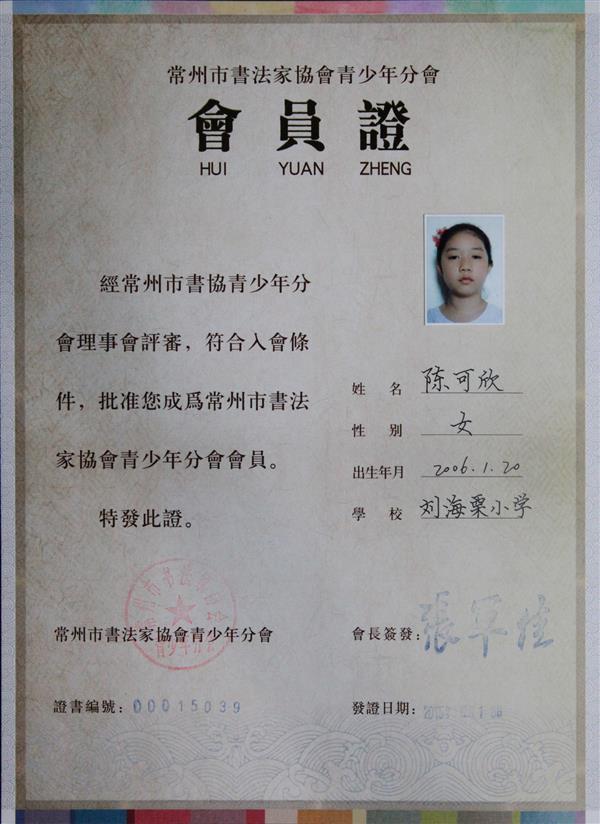 常州市書法家協會青少年分會
會員證
HUI YUAN ZHENG
經常州市書協青少年分
會理事會評審，符合入會條
件，批准您成爲常州市書法
家協會青少年分會會員。
特發此證。
姓名 陈可欣
性別 女
出生年月 2006.1.20
學校 刘海粟小学
常州市書法家協會青少年分會
會長簽發：
證書編號：00015039
發證日期：